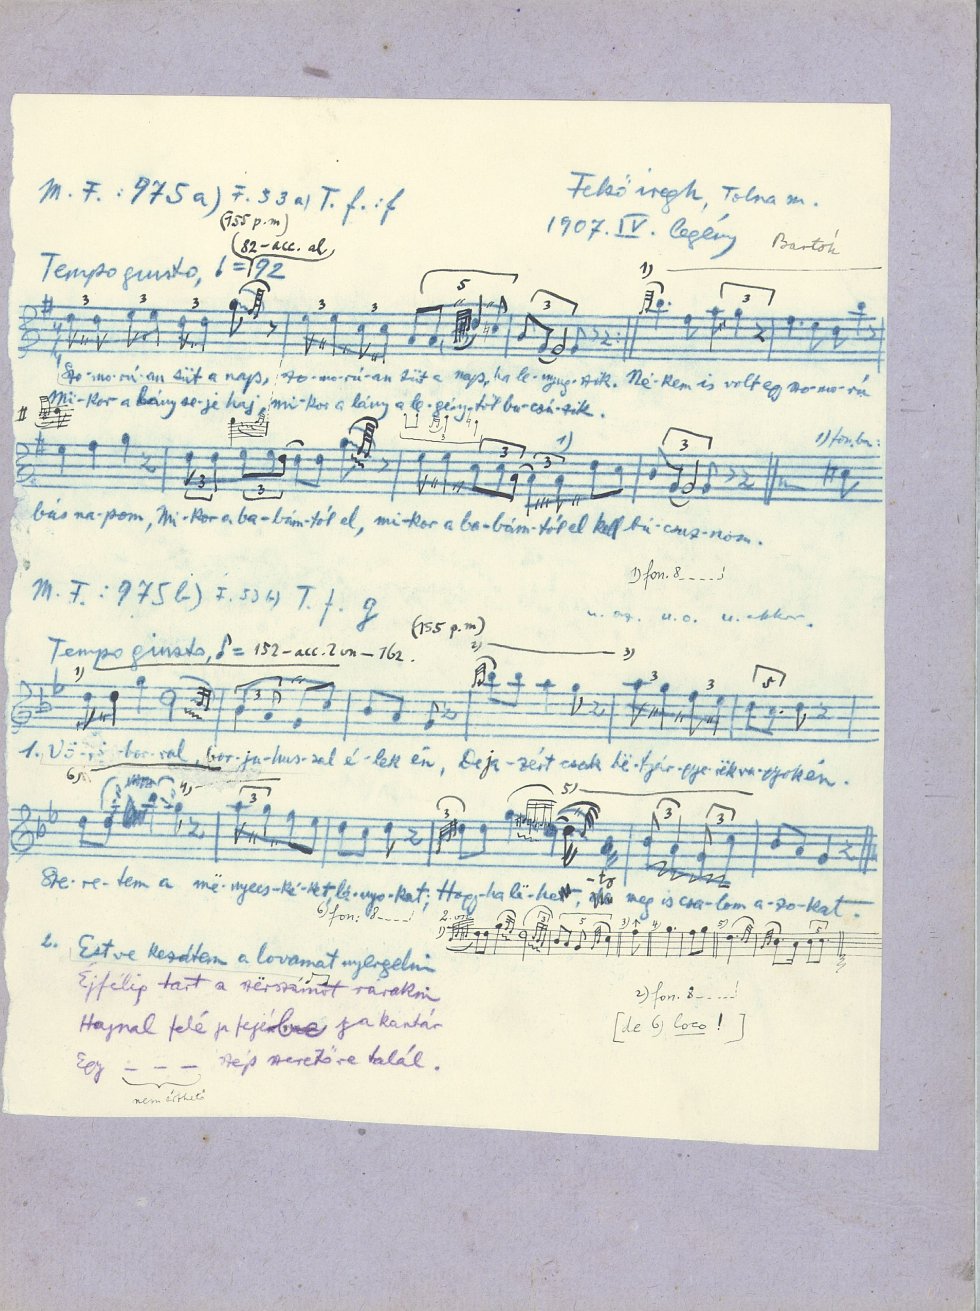 M. F. : 975 a) F. 53 a) T. f. : f
Felsőiregh, Tolna m.
1907. IV. legény
Bartók
(155 p.m)
(82 - acc. al
Tempo giusto, = 92
1)
3 3 3 3 3 5 3 3
Szo-mo-rú-an süt a nap, szo-mo-rú-an süt a nap, ha le-nyug-szik. Né-kem is volt egy szo-mo-rú
Mi-kor a lány haj, mi-kor a lány a le-gény-től bu-csú-zik.
1) 1) fon.ban:
3 3 3 3 3
bús na-pom, Mi-kor a ba-bám-tól el, mi-kor a ba-bám-tól el kell bú-csuz-nom.
1) fon. 8
M. F. : 975 b) F. 53 b) T. f. g
u. az. u.o. u. akkor.
(155 p.m)
Tempo giusto, ♪ = 152 - acc. 2 - 162.
1) 2) 3)
3 3 3 5
1. Vö-rös-bor-ral, bor-ju-hus-sal é-lek én, De ja-zért csak bë-tyár-gye-rëk va-gyok én.
6) 4) 5)
3 3 3 3
Sze-re-tem a më-nyecs-ké-ket, lá-nyo-kat; Hogy-ha lë-het, meg is csa-lom a-zo-kat.
6) fon: 8
1) 3) 4) 5)
2. Estve kezdtem a lovamat nyergelni
Éjfélig tart a szërszámot rárakni
2) fon. 8
Hajnal felé ja kantár
[de 6) loco! ]
Egy _ _ _ szép szeretőre talál.
nem érthető